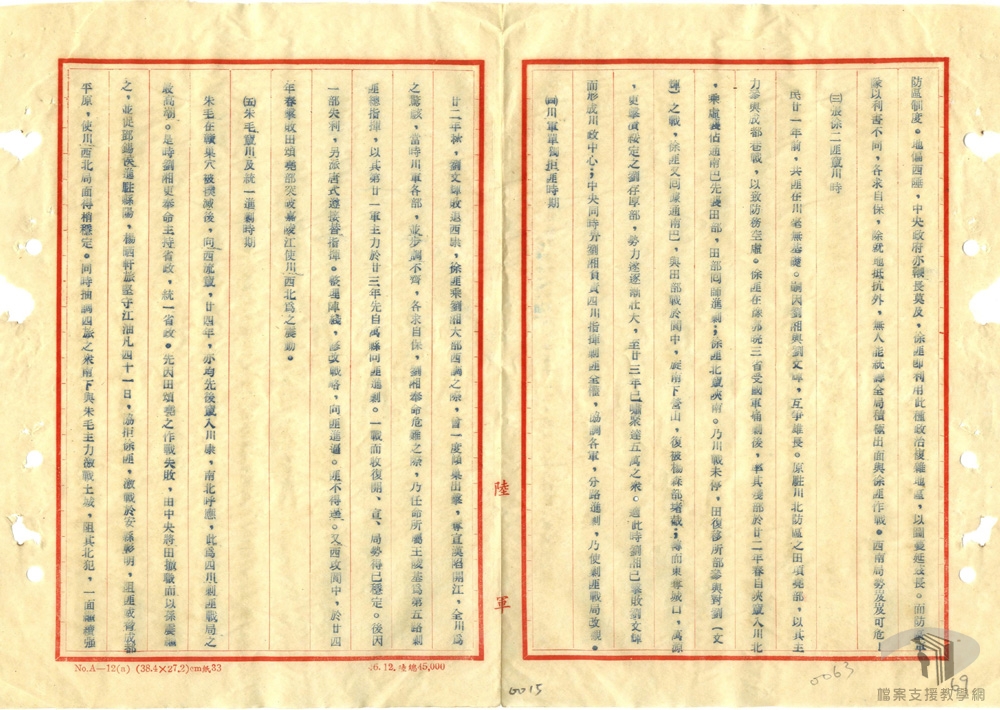 防區制度。地偏西陲,中央政府亦鞭長莫及,徐匪即利用此種政治複雜地區,以圖蔓延發長。而防軍
隊以利害不同,各求自保,除就地抵抗外,無人能統籌全局積極出面與徐匪作戰。西南局勢岌岌可危!
㈢張徐二匪竄川時
民廿一年前,共匪在川毫無基礎。嗣因劉湘與劉文輝,互爭雄長。原駐川北防區之田頌堯部,以其主
力參與成都巷戰,以致防務空虛。徐匪在徐鄂皖三省受國軍痛剿後,率其殘部於廿二年春自陝竄入川北
,乘虛襲佔通南巴先後田部,田部回師進剿;徐匪北竄陝南。乃川戰未停,田復移所部參與對劉(文
輝)之戰,徐匪又向東通南巴,與田部戰於閬中,旋南下營山,後被楊森部堵截;轉而東奪城口,萬源
,更擊潰綏定之劉存厚部,勢力遂逐漸壯大,至廿三年已嘯聚達五萬之眾。適此時劉湘已擊敗劉文輝
而形成川政中心;中央同時畀劉湘負責四川指揮剿匪全權,協調各軍,分路進剿,乃使剿匪戰局改觀。
㈣川軍單獨拒匪時期
廿二年秋,劉文輝敗退西康,徐匪乘劉湘大部西調之際,曾一度傾巢出擊,奪宣漢陷開江,全川為
之驚駭,當時川軍各部,並步調不齊,各求自保,劉湘奉命危難之際,乃任命所屬王陵基為第五路剿
匪總指揮,以其第廿一軍主力於廿三年先自萬縣向匪進剿。一戰而收復開、宣、局勢得已穩定。後因
一部失利,另派唐式遵接替指揮。整理陣綫,修改戰略,向匪進逼。匪不得逞。又西攻閬中,於廿四
年春擊敗田頌堯部突破嘉陵江使川西北為之震動。
㈤朱毛竄川及統一進剿時期
朱毛在贛巢穴被撲滅後,向西流竄,廿四年,亦均先後竄入川康,南北呼應,此為四川剿匪戰局之
最高潮。是時劉湘更奉命主持省政,統一省政。先因田頌堯之作戰失敗,由中央將田撤職而以孫震繼
之,並促鄧錫侯進駐綿陽,楊晒軒旅堅守江油凡四十一日,協拒徐匪,激戰於安縣彰明,阻匪或脅成都
平原,使川西北局面得稍穩定。同時抽調四旅之眾南下與朱毛主力激戰土城,阻其北犯,一面繼續強
陸軍
No.A—12(n) (38.4×27.2)cm紙33
46.12.陸總45,000
0015
0063
69
檔案支援教學網